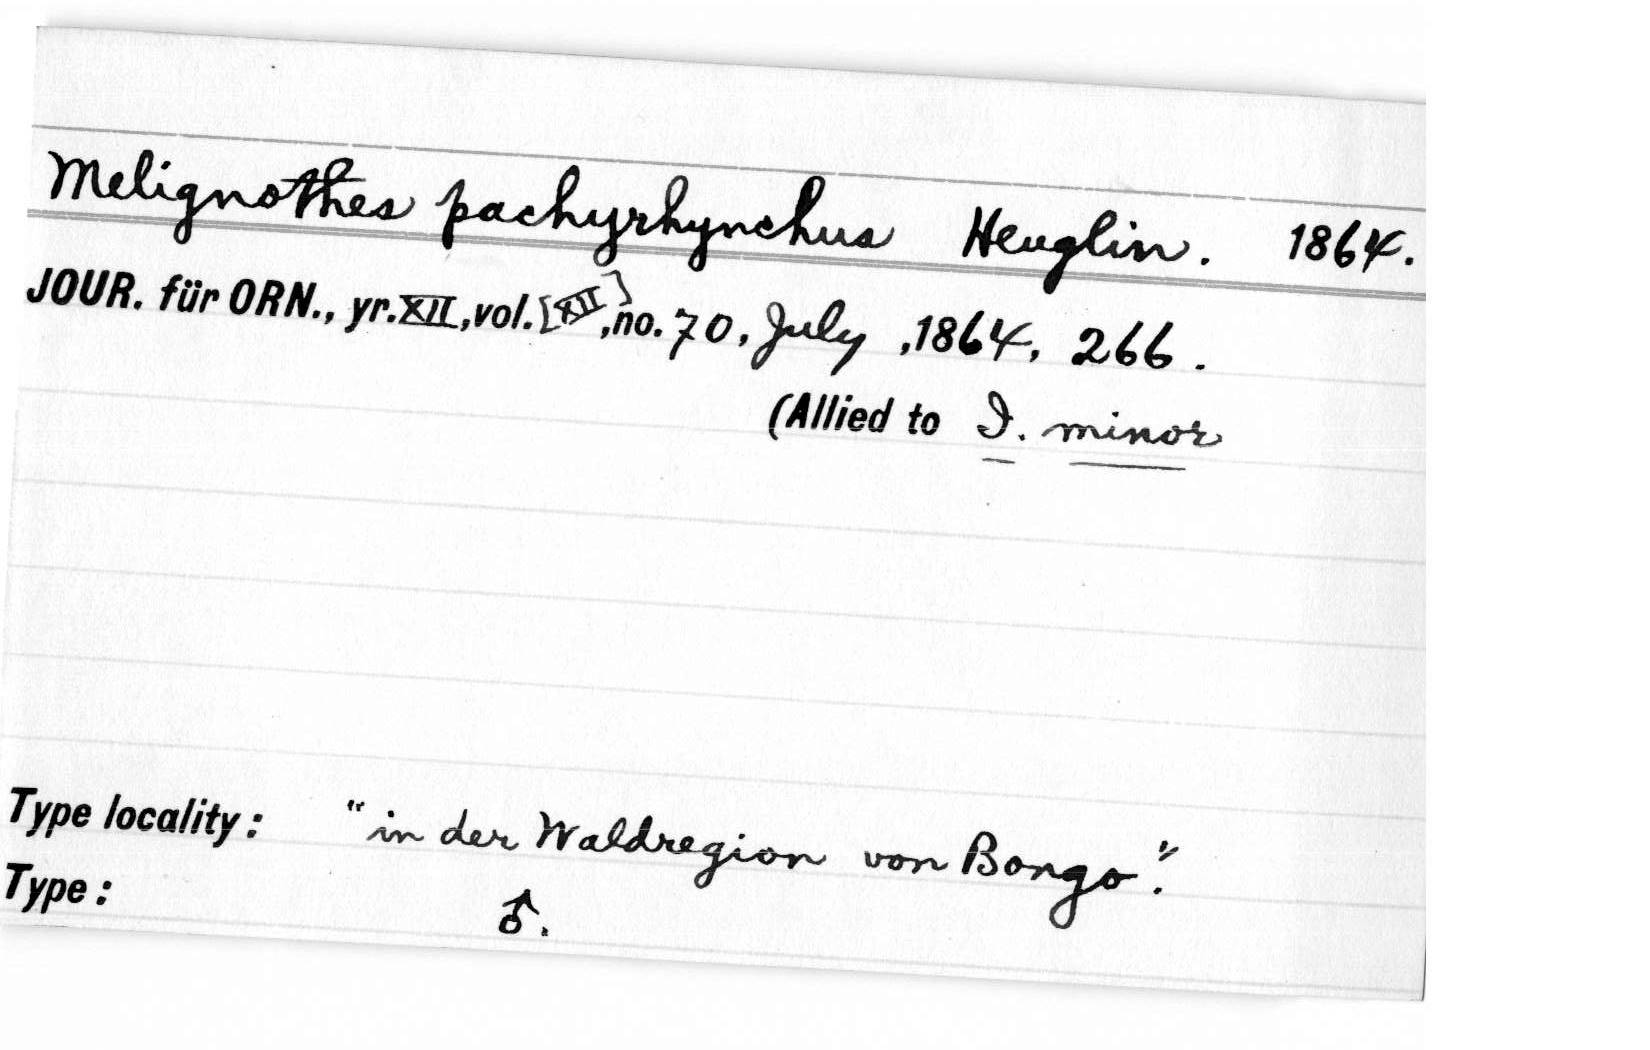 Melignothes pachyrhynchus Heuglin. 1864.
JOUR. für ORN., yr. XII, vol. [XII], no. 70, July, 1864, 266.
(Allied to I. minor
Type locality: "in der Waldregion von Bongo".
Type: ♂.